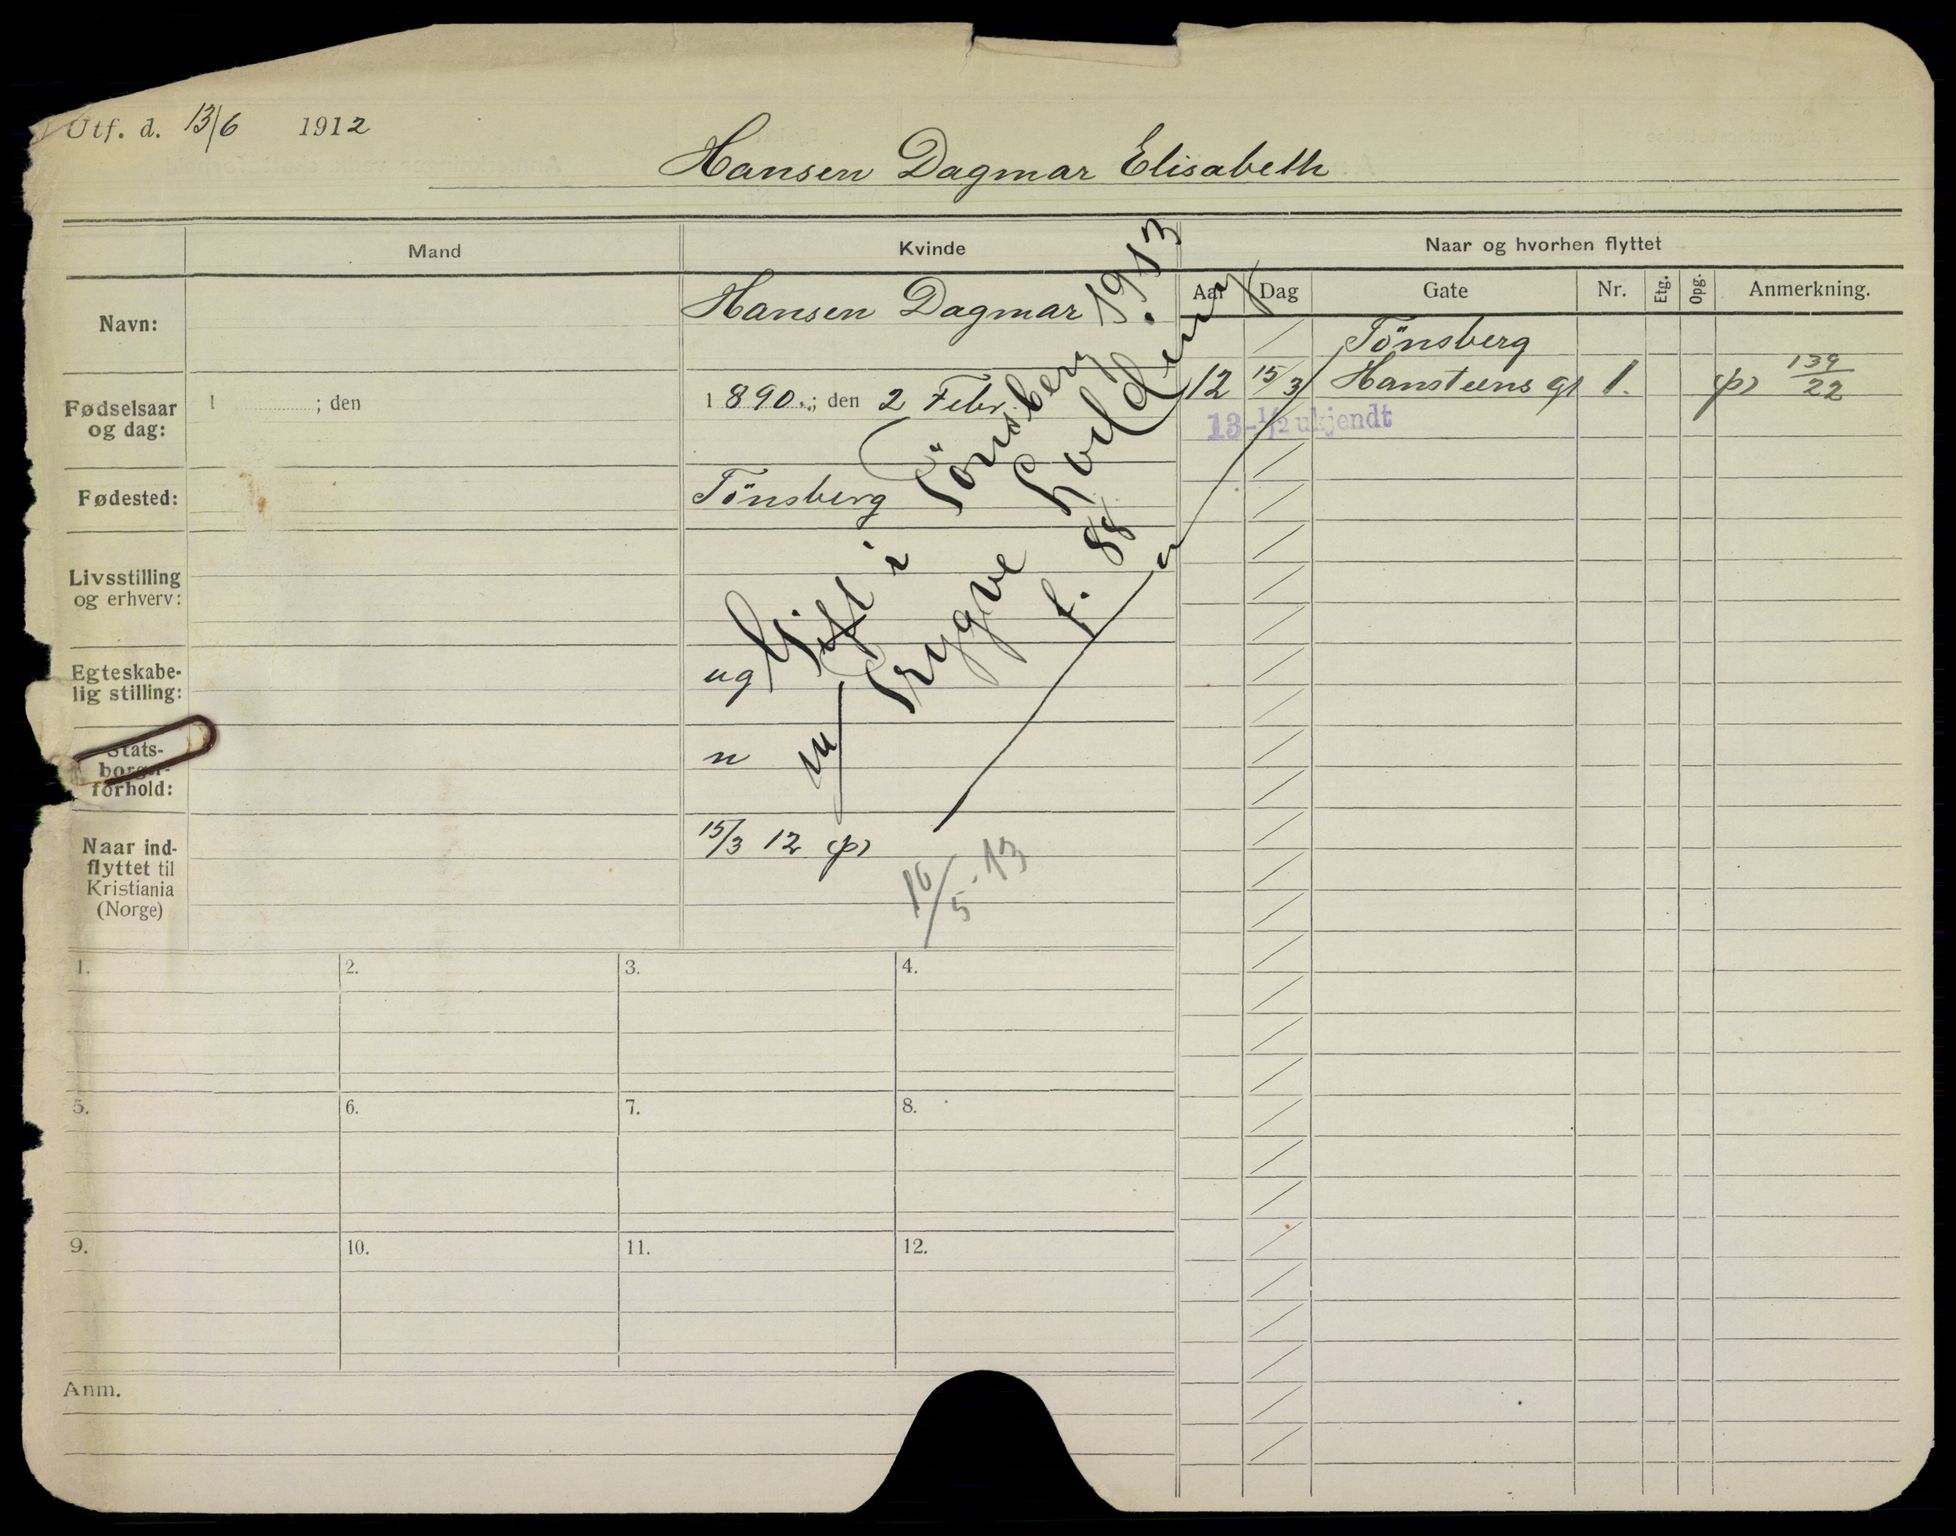 Utf. d. 13/6 1912
Hansen Dagmar Elisabeth
Mand
Kvinde
Naar og hvorhen flyttet
Aar Dag Gate Nr. Etg. Opg. Anmerkning.
Navn:
Hansen Dagmar
Tönsberg
12 15/3 Hansteens gt 1. (p) 139/22
13-1/2 ukjendt
Fødselsaar
og dag:
1 ; den
1 890.; den 2 Febr.
Fødested:
Tönsberg
Livsstilling
og erhverv:
Egteskabe-
lig stilling:
ug
Stats-
borger-
forhold:
n
Naar ind-
flyttet til
Kristiania
(Norge)
15/3 12 (p)
Gift i Tönsberg 1913
m/ Trygve
f. 88
16/5.13
1. 2. 3. 4.
5. 6. 7. 8.
9. 10. 11. 12.
Anm.